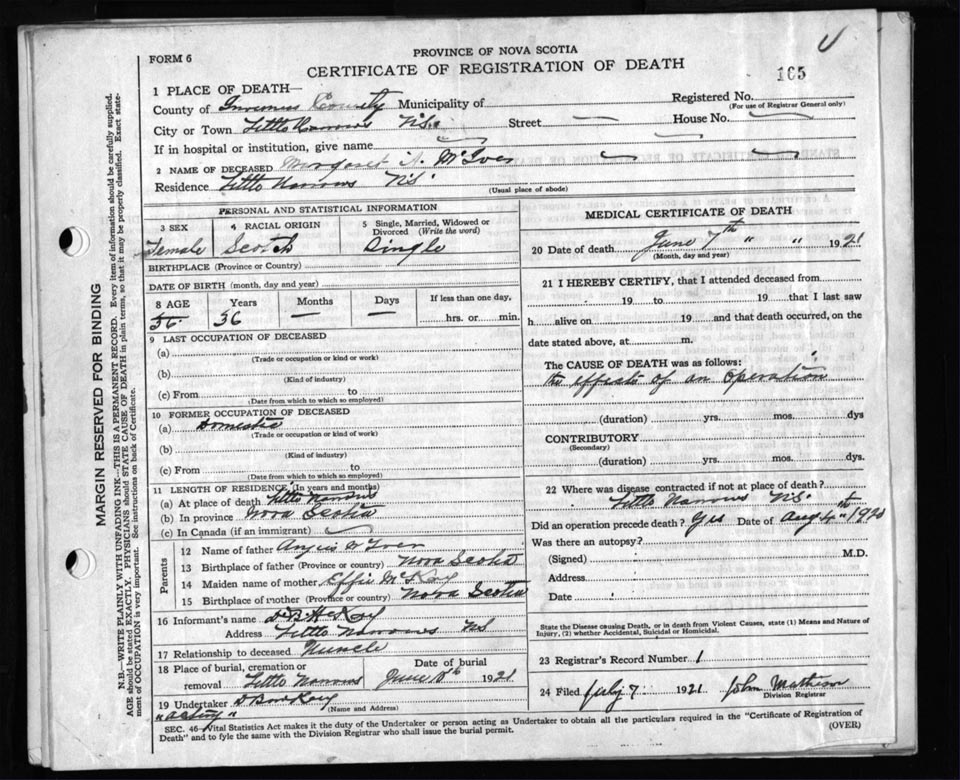 PROVINCE OF NOVA SCOTIA
FORM 6
CERTIFICATE OF REGISTRATION OF DEATH
165
1 PLACE OF DEATH—
County of Inverness County Municipality of
Registered No.
(For use of Registrar General only)
City or Town Little Narrows N.S. Street House No.
If in hospital or institution, give name
2 NAME OF DECEASED Margaret A. McIver
Residence Little Narrows N.S.
(Usual place of abode)
PERSONAL AND STATISTICAL INFORMATION
3 SEX
Female
4 RACIAL ORIGIN
Scotch
5 Single, Married, Widowed or Divorced (Write the word)
Single
BIRTHPLACE (Province or Country)
DATE OF BIRTH (month, day and year)
8 AGE Years Months Days If less than one day,
56 56 — — hrs. or min.
9 LAST OCCUPATION OF DECEASED
(a)
(Trade or occupation or kind or work)
(b)
(Kind of industry)
(c) From to
(Date from which to which so employed)
10 FORMER OCCUPATION OF DECEASED
(a) Domestic
(Trade or occupation or kind of work)
(b)
(Kind of industry)
(c) From to
(Date from which to which so employed)
11 LENGTH OF RESIDENCE (In years and months)
(a) At place of death Little Narrows
(b) In province Nova Scotia
(c) In Canada (if an immigrant)
Parents
12 Name of father Angus
13 Birthplace of father (Province or country) Nova Scotia
14 Maiden name of mother Effie McKay
15 Birthplace of mother (Province or country) Nova Scotia
16 Informant's name
Address Little Narrows NS
17 Relationship to deceased Nuncle
18 Place of burial, cremation or removal Little Narrows
Date of burial
June 1921
19 Undertaker
(Name and Address)
"acting"
MEDICAL CERTIFICATE OF DEATH
20 Date of death June 7th " " 1921
(Month, day and year)
21 I HEREBY CERTIFY, that I attended deceased from
19 to 19 that I last saw
h alive on 19 and that death occurred, on the
date stated above, at m.
The CAUSE OF DEATH was as follows:
the effects of an operation
(duration) yrs. mos. dys
CONTRIBUTORY
(Secondary)
(duration) yrs. mos. dys.
22 Where was disease contracted if not at place of death?
Little Narrows N.S.
Did an operation precede death? Yes Date of Aug 4th 1920
Was there an autopsy?
(Signed) M.D.
Address
Date
State the Disease causing Death, or in death from Violent Causes, state (1) Means and Nature of
Injury, (2) whether Accidental, Suicidal or Homicidal.
23 Registrar's Record Number 1
24 Filed July 7 1921 John Matheson
Division Registrar
SEC. 46—Vital Statistics Act makes it the duty of the Undertaker or person acting as Undertaker to obtain all the particulars required in the "Certificate of Registration of
Death" and to fyle the same with the Division Registrar who shall issue the burial permit.
(OVER)
MARGIN RESERVED FOR BINDING
N.B.—WRITE PLAINLY WITH UNFADING INK—THIS IS A PERMANENT RECORD. Every item of information should be carefully supplied.
AGE should be stated EXACTLY. PHYSICIANS should STATE CAUSE OF DEATH in plain terms, so that it may be properly classified. Exact statement
of OCCUPATION is very important. See instructions on back of Certificate.